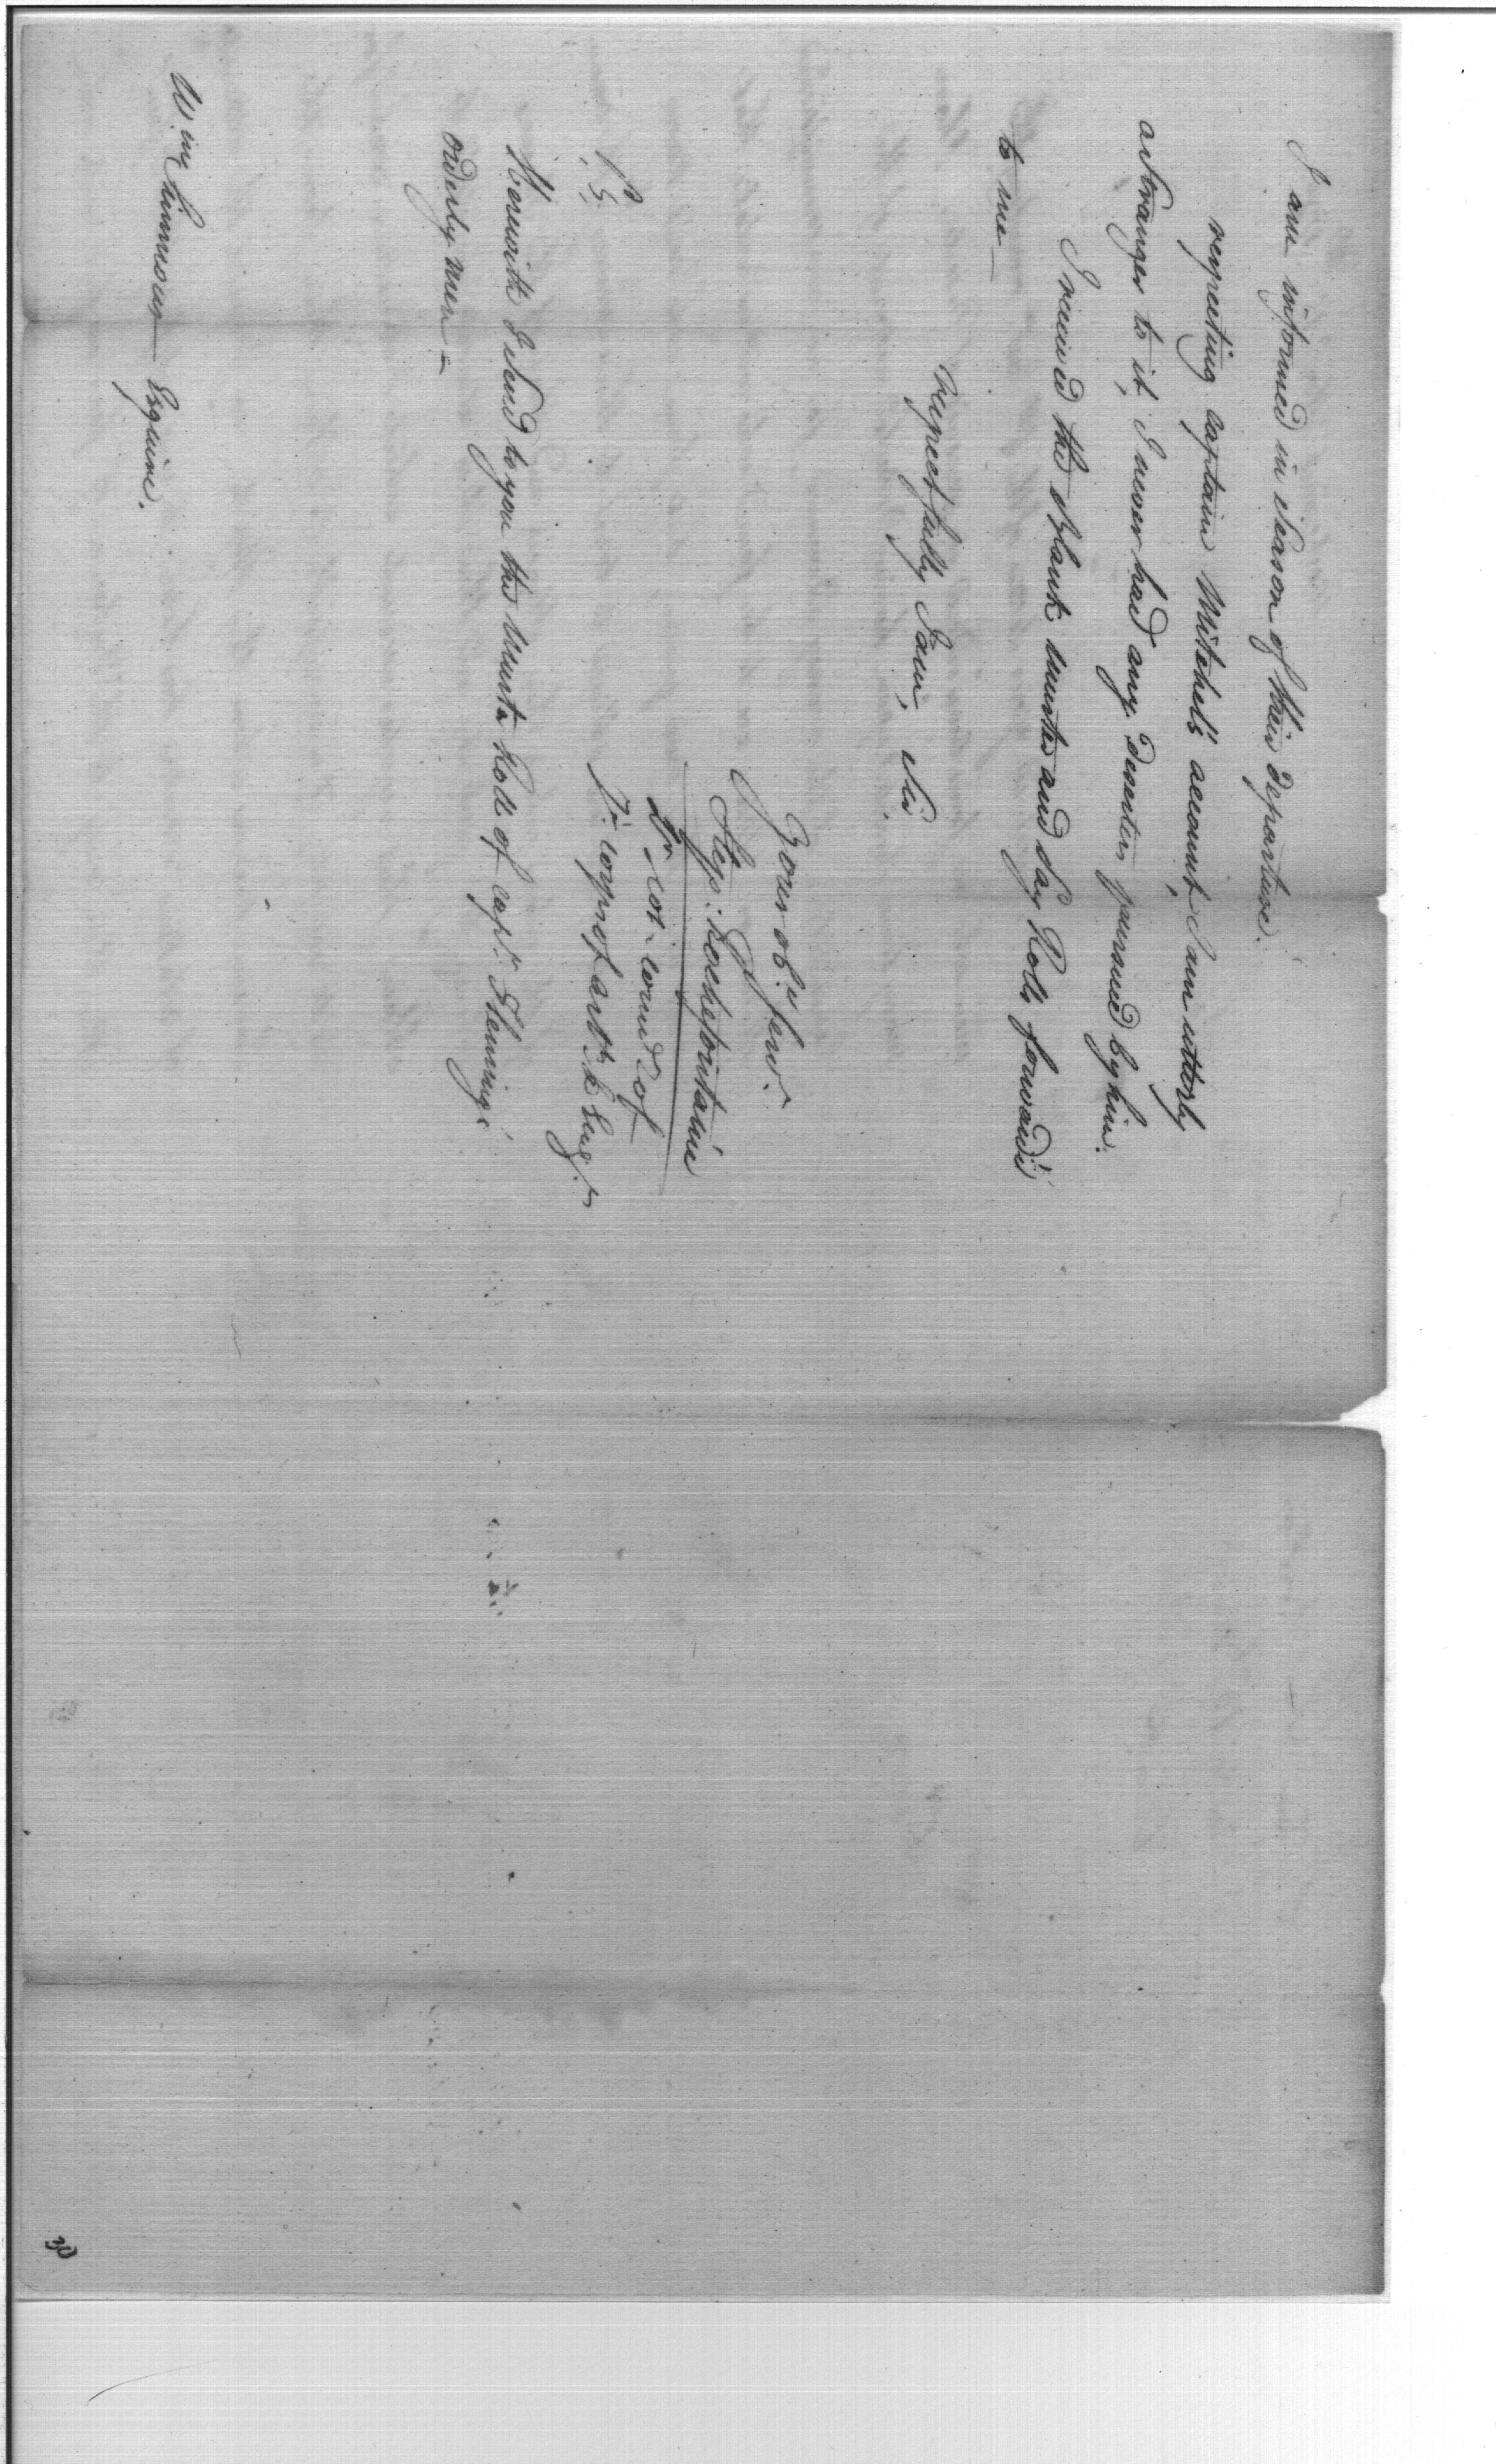 I am informed in Season of their departure.
respecting Captain Mitchel's account, I am utterly
a Stranger to it, I never had any deserters pursued by him.
I received the Blank muster and Pay Rolls forward'd
to me —
Respectfully I am, Sir
Your ob.t Serv.t
Step: Rochefontaine
Lt. Col. Comd.t of
corps of Art.y & Eng.rs
P.S.
Herewith I Send to you the Muster Roll of Cap.t Fleming's
orderly men =
W.m Simmons Esquire.
30